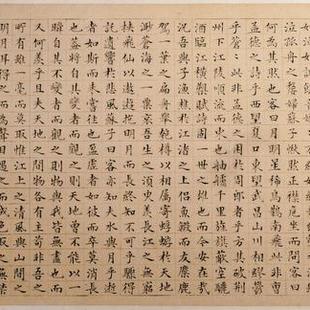 泣孤舟之嫠婦蘇子愀然正襟危坐而問客曰
何為其然也客曰月明星稀烏鵲南飛此非曹
孟德之詩乎西望夏口東望武昌山川相繆鬱
乎蒼蒼此非孟德之困於周郎者乎方其破荊
州下江陵順流而東也舳艫千里旌旗蔽空釃
酒臨江橫槊賦詩固一世之雄也而今安在哉
況吾與子漁樵於江渚之上侶魚鰕而友麋鹿
駕一葉之扁舟舉匏樽以相屬寄蜉蝣於天地
渺滄海之一粟哀吾生之須臾羨長江之無窮
挾飛仙以遨遊抱明月而長終知不可乎驟得
託遺響於悲風蘇子曰客亦知夫水與月乎逝
者如斯而未嘗往也盈虛者如彼而卒莫消長
也蓋將自其變者而觀之則天地曾不能以一
瞬自其不變者而觀之則物與我皆無盡也而
又何羨乎且夫天地之間物各有主苟非吾之
所有雖一毫而莫取惟江上之清風與山間之
明月耳得之而為聲目遇之而成色取之無禁